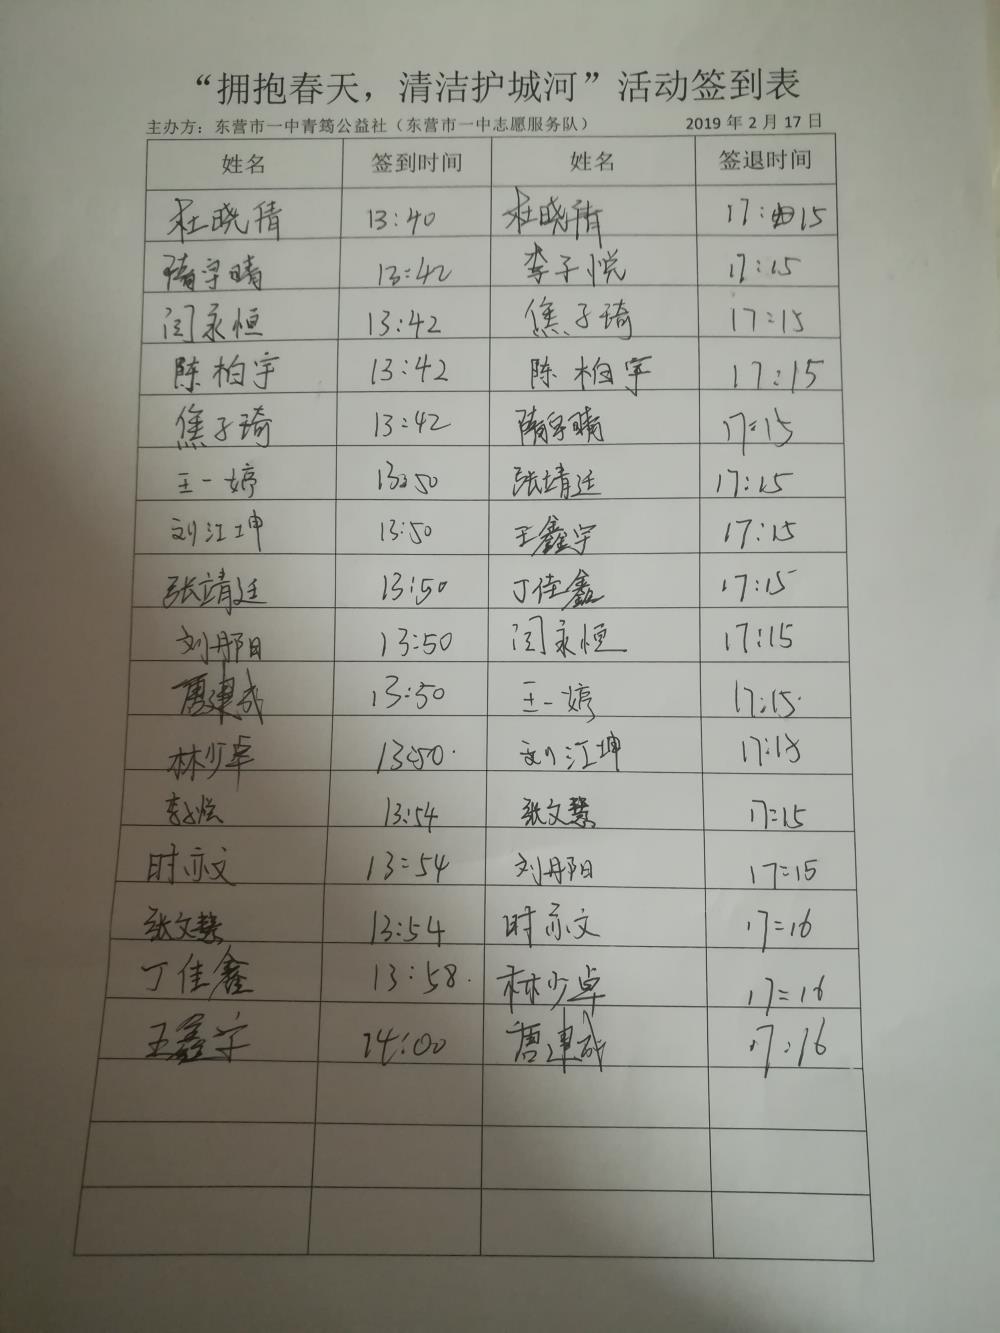 “拥抱春天，清洁护城河”活动签到表
主办方：东营市一中青筠公益社（东营市一中志愿服务队） 2019 年 2 月 17 日
姓名 签到时间 姓名 签退时间
杜晓倩 13:40 杜晓倩 17:15
隋宇晴 13:42 李子悦 17:15
闫永恒 13:42 焦子琦 17:15
陈柏宇 13:42 陈柏宇 17:15
焦子琦 13:42 隋宇晴 17:15
王一婷 13:50 张靖廷 17:15
刘江坤 13:50 王鑫宇 17:15
张靖廷 13:50 丁佳鑫 17:15
刘丹阳 13:50 闫永恒 17:15
唐建成 13:50 王一婷 17:15
林少卓 13:50 刘江坤 17:15
13:54 张文慧 17:15
时亦文 13:54 刘丹阳 17:15
张文慧 13:54 时亦文 17:16
丁佳鑫 13:58 林少卓 17:16
王鑫宇 14:00 唐建成 17:16